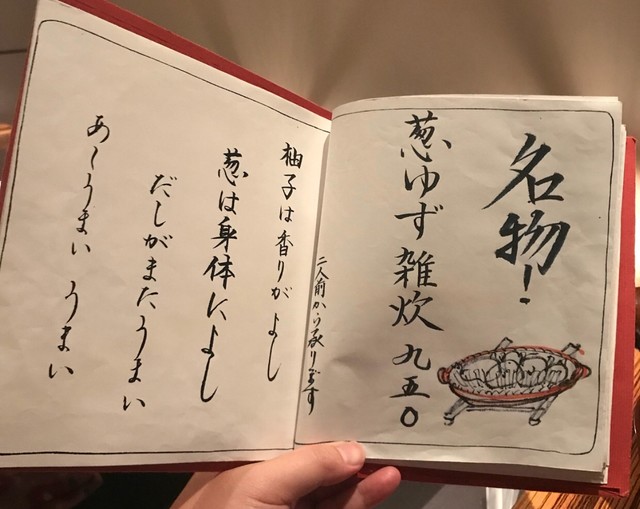 名物!
葱ゆず雑炊 九五〇
二人前から承ります
柚子は香りがよし
葱は身体によし
だしがまたうまい
あーうまい うまい